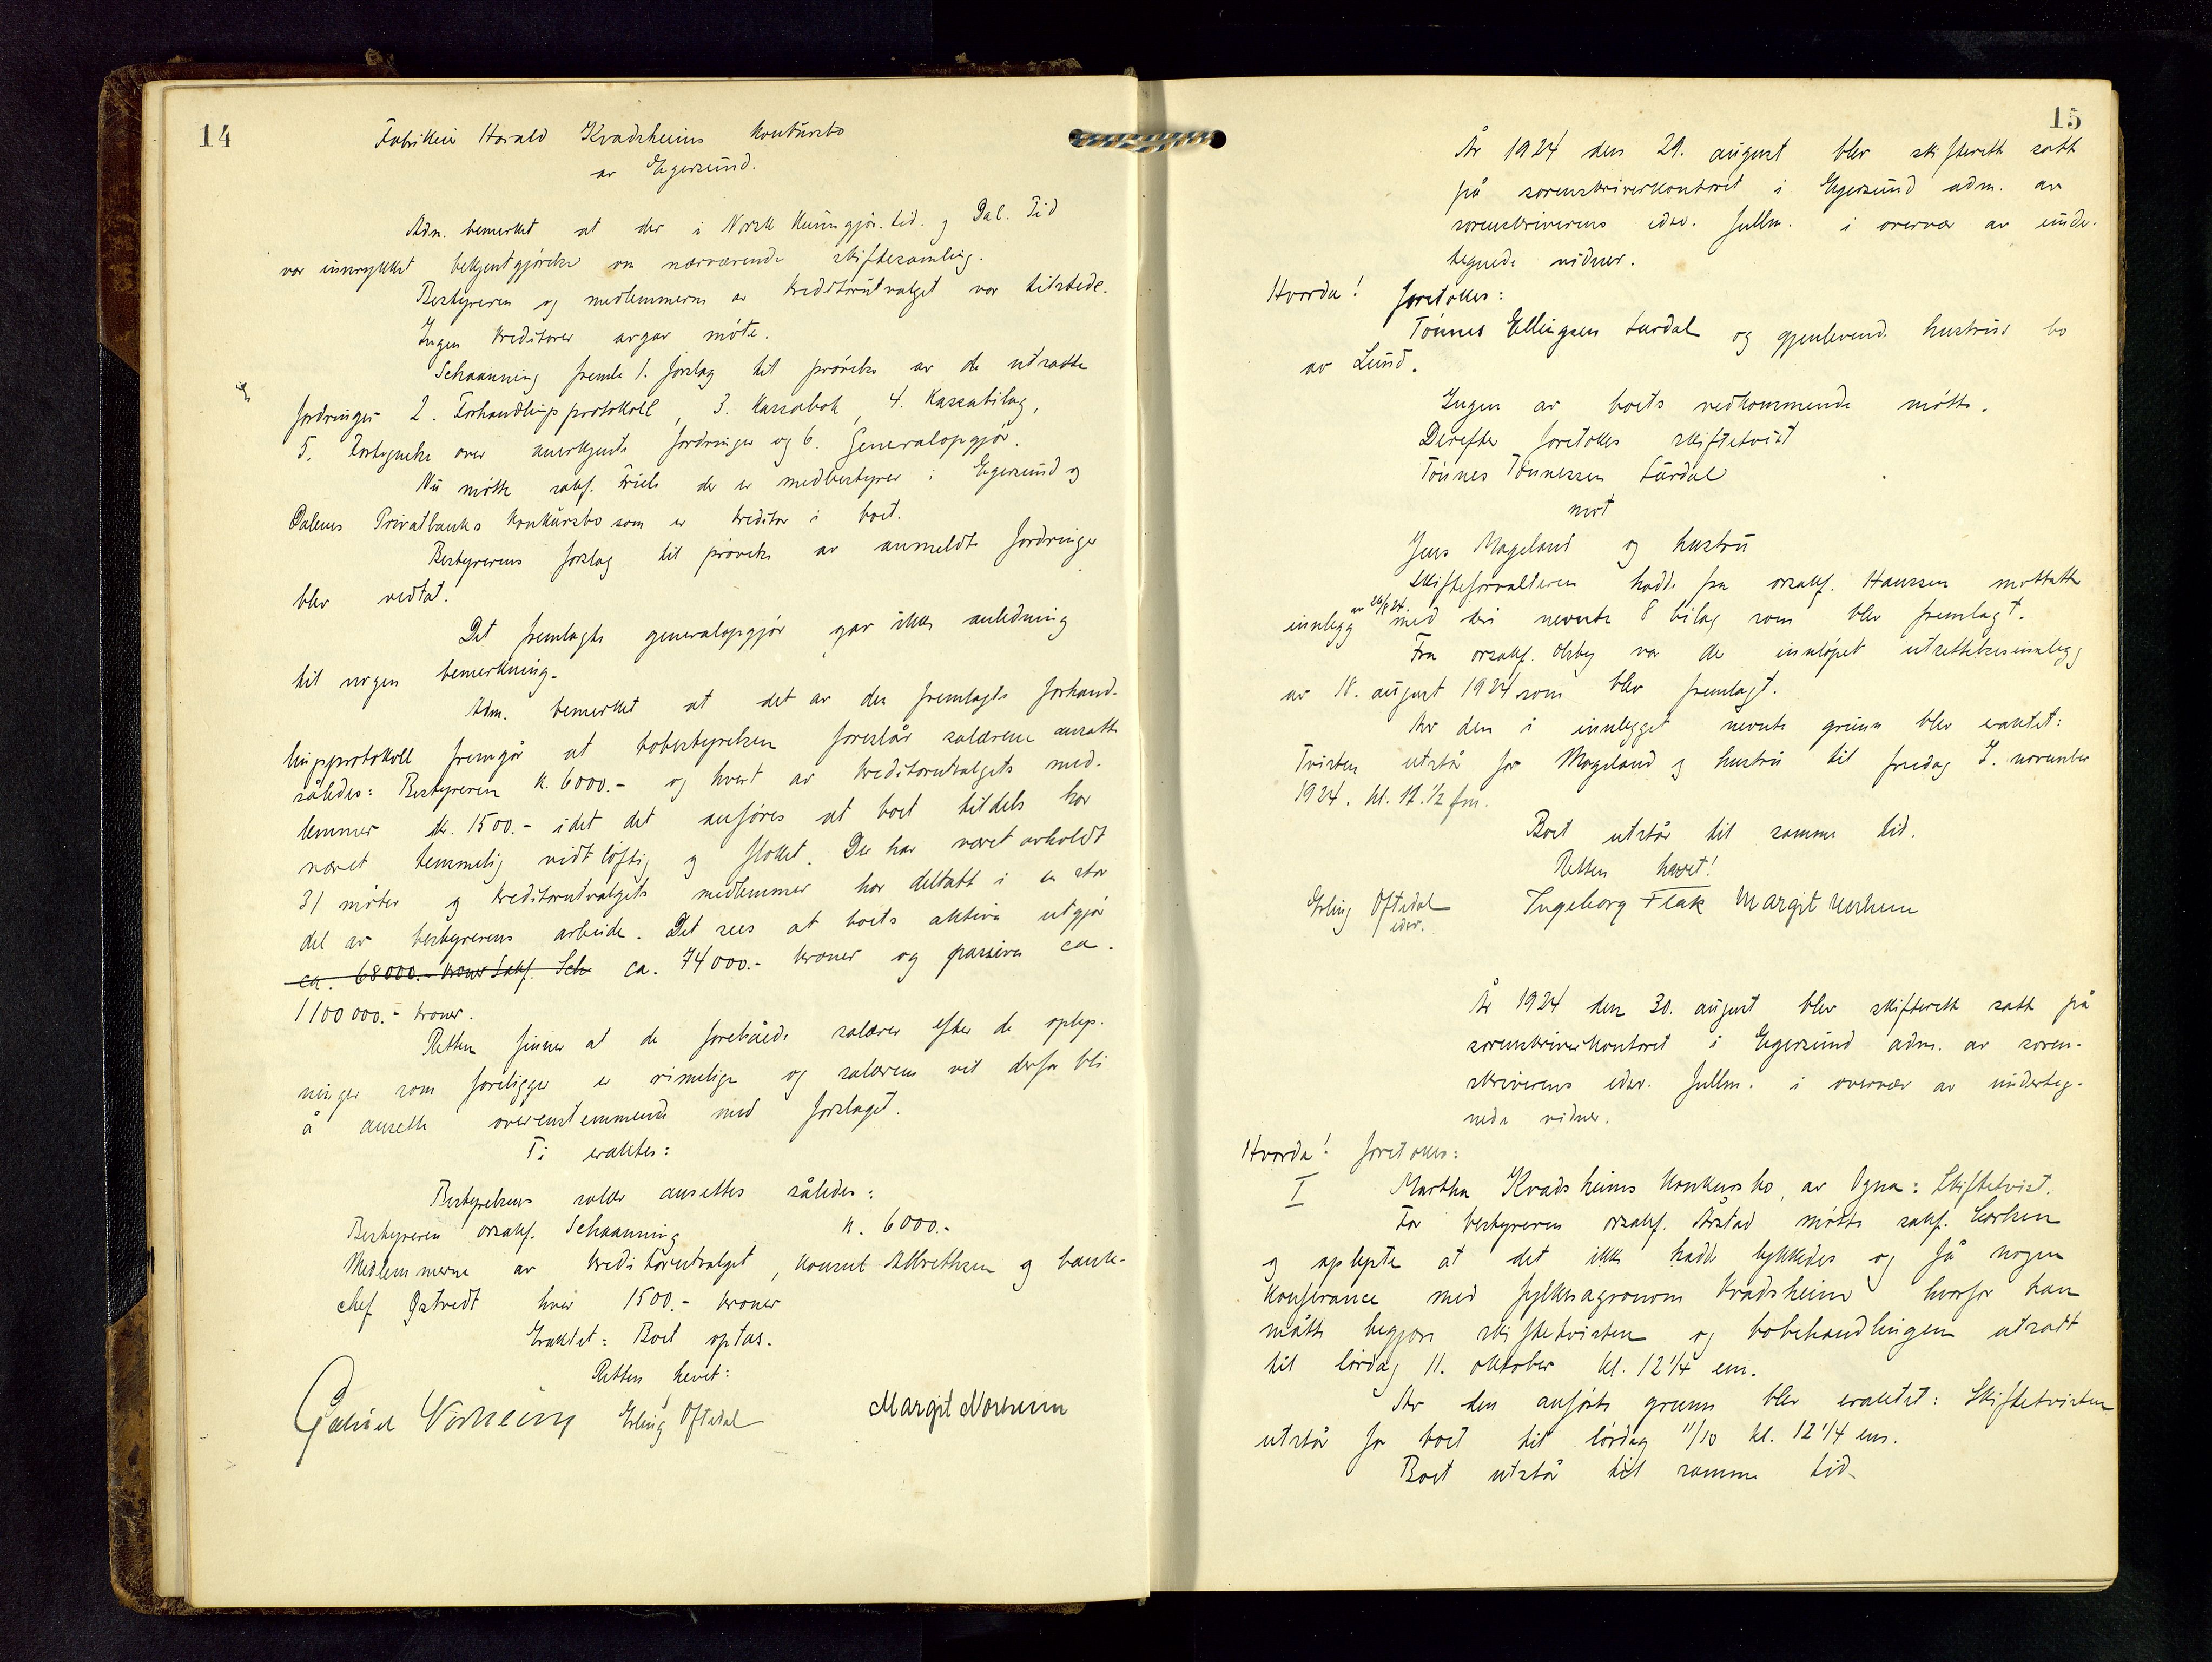 14
Fabrikeier Harald Kvadsheims konkursbo
av Egersund.
Adm. bemerket at der i Norsk Kunngjør. tid. og Dal. Tid
var innrykket bekjentgjørelse om nærværende skiftesamling.
Bestyreren og medlemmerne av kreditorutvalget var tilstede.
Ingen kreditorer avgav møte.
Schaanning fremla 1. forslag til prøvelse av de utsatte
fordringer 2. Forhandlingsprotokoll, 3. Kassabok, 4. Kassabilag,
5. Fortegnelse over anerkjente fordringer og 6. Generalopgjør.
Nu møtte sakf. Friele der er medbestyrer i Egersund og
Dalenes Privatbanks konkursbo som er kreditor i boet.
Bestyrerens forslag til prøvelse av anmeldte fordringer
blev vedtat.
Det fremlagte generalopgjør gav ikke anledning
til nogen bemerkning.
Adm. bemerket at det av den fremlagte forhand-
lingsprotokoll fremgår at bobestyrelsen foreslår salærene ansatt
således: Bestyreren k. 6000.- og hvert av kreditorutvalgets med-
lemmer k. 1500.- idet det anføres at boet tildels har
været temmelig vidtløftig og flokket. Der har været avholdt
31 møter og kreditorutvalgets medlemmer har deltatt i en stor
del av bestyrerens arbeide. Det sees at boets aktiva utgjør
ca. 68000.- kroner Sakf. Sch ca. 74000.- kroner og passiva ca.
1100000.- kroner.
Retten finner at de foreslåede salærer efter de oplys-
ninger som foreligger er rimelige og salærene vil derfor bli
å ansette overenstemmende med forslaget.
Ti eraktes:
Bestyrelsens salær ansettes således:
Bestyreren orsakf. Schaanning k. 6000.-
Medlemmerne av kreditorutvalget, konsul Albrethsen og bank-
chef Østvedt hver 1500.- kroner
Eraktet: Boet optas.
Retten hevet:
Gabriel Norheim Erling Oftedal Margit Norheim
15
År 1924 den 29. august blev skifterett satt
på sorenskriverkontoret i Egersund adm. av
sorenskriverens edsv. fullm. i overvær av under-
tegnede vidner.
Hvorda! foretokes:
Tønnes Ellingsen Lurdal og gjenlevende hustrus bo
av Lund.
Ingen av boets vedkommende møtte.
Derefter foretokes skiftetvist
Tønnes Tønnessen Lurdal
mot
Jens Mogeland og hustru
Skifteforvalteren hadde fra orsakf. Hanssen mottatt
av 26/8 24.
innlegg med deri nevnte 8 bilag som blev fremlagt.
Fra orsakf. Olsby var der innløpet utsettelsesinnlegg
av 18. august 1924 som blev fremlagt.
Av den i innlegget nevnte grunn blev eraktet:
Tvisten utstår for Mogeland og hustru til fredag 7. november
1924. kl. 11.1/2 fm.
Boet utstår til samme tid.
Retten hævet!
Erling Oftedal Ingeborg Flak Margit Norheim
edsv.
År 1924 den 30. august blev skifterett satt på
sorenskriverkontoret i Egersund adm. av soren-
skriverens edsv. fullm. i overvær av underteg-
nede vidner.
Hvorda! foretokes:
I Martha Kvadsheims konkursbo, av Ogna: Skiftetvist.
For bestyreren orsakf. Årstad møtte sakf. Carlsen
og oplyste at det ikke hadde lykkedes og få nogen
konferance med fylkesagronom Kvadsheim hvorfor han
måtte begjære skiftetvisten og bobehandlingen utsatt
til lørdag 11. oktober kl. 12 1/4 em.
Av den anførte grunn blev eraktet: Skiftetvisten
utstår for boet til lørdag 11/10 kl. 12 1/4 em.
Boet utstår til samme tid.